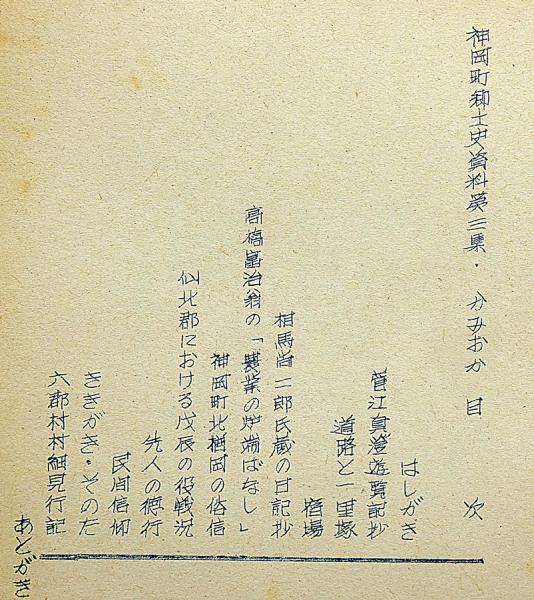 神岡町郷土史資料第三集・かみおか 目次
はしがき
菅江真澄遊覧記抄
道路と一里塚
宿場
相馬尚一郎氏蔵の日記抄
高橋富治翁の「農業の炉端ばなし」
神岡町北楢岡の俗信
仙北郡における戊辰の役戦況
先人の徳行
民間信仰
ききがき・そのた
六郡村村細見行記
あとがき